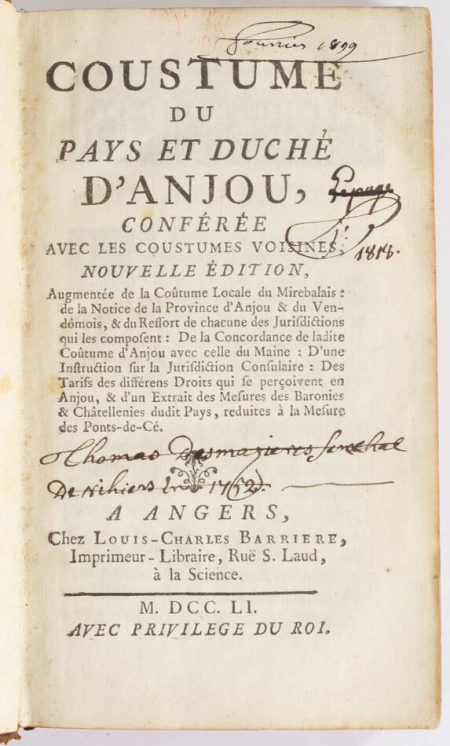 Fourrier 1899
COUSTUME
DU
PAYS ET DUCHÉ
D'ANJOU,
Lepage
1818.
CONFÉRÉE
AVEC LES COUSTUMES VOISINES,
NOUVELLE ÉDITION,
Augmentée de la Coûtume Locale du Mirebalais :
de la Notice de la Province d'Anjou & du Ven-
dômois, & du Ressort de chacune des Jurisdictions
qui les composent : De la Concordance de ladite
Coûtume d'Anjou avec celle du Maine : D'une
Instruction sur la Jurisdiction Consulaire : Des
Tarifs des différens Droits qui se perçoivent en
Anjou, & d'un Extrait des Mesures des Baronies
& Châtellenies dudit Pays, reduites à la Mesure
des Ponts-de-Cé.
Thomas Desmazieres senechal
De vihiers 1762
A ANGERS,
Chez LOUIS-CHARLES BARRIERE,
Imprimeur-Libraire, Ruë S. Laud,
à la Science.
M. DCC. LI.
AVEC PRIVILEGE DU ROI.